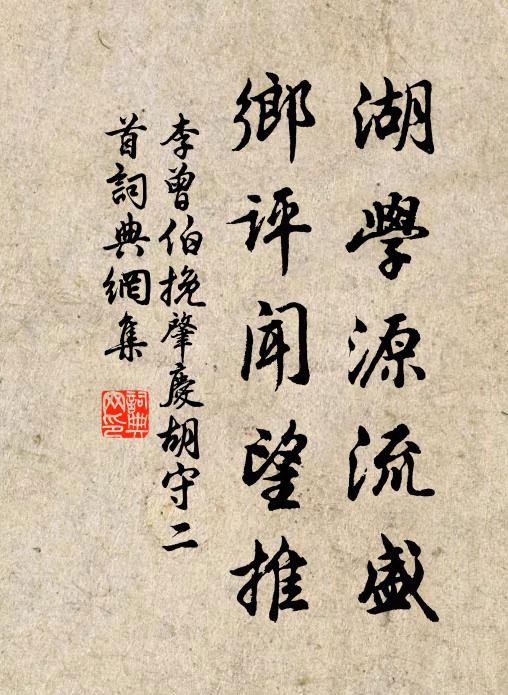 湖學源流盛
鄉評聞望推
李曾伯挽肇慶胡守二
首詞典網集
詞典網印